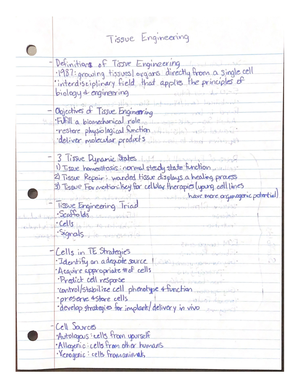 Tissue Engineering
- Definitions of Tissue Engineering
• 1987: growing tissues/organs directly from a single cell
• interdisciplinary field that applies the principles of
biology & engineering
- Objectives of Tissue Engineering
• Fulfill a biomechanical role
• restore physiological function
• deliver molecular products
- 3 Tissue Dynamic States
1) Tissue homeostasis: normal steady state function
2) Tissue Repair: wounded tissue displays a healing process
3) Tissue Formation: key for cellular therapies (young cell lines
have more organogenic potential)
- Tissue Engineering Triad
• Scaffolds
• Cells
• Signals
- Cells in TE Strategies
• Identify an adequate source
• Acquire appropriate # of cells
• Predict cell response
• control/stabilize cell phenotype & function
• preserve & store cells
• develop strategies for implant/delivery in vivo
- Cell Sources
• Autologous: cells from yourself
• Allogenic: cells from other humans
• Xenogenic: cells from animals